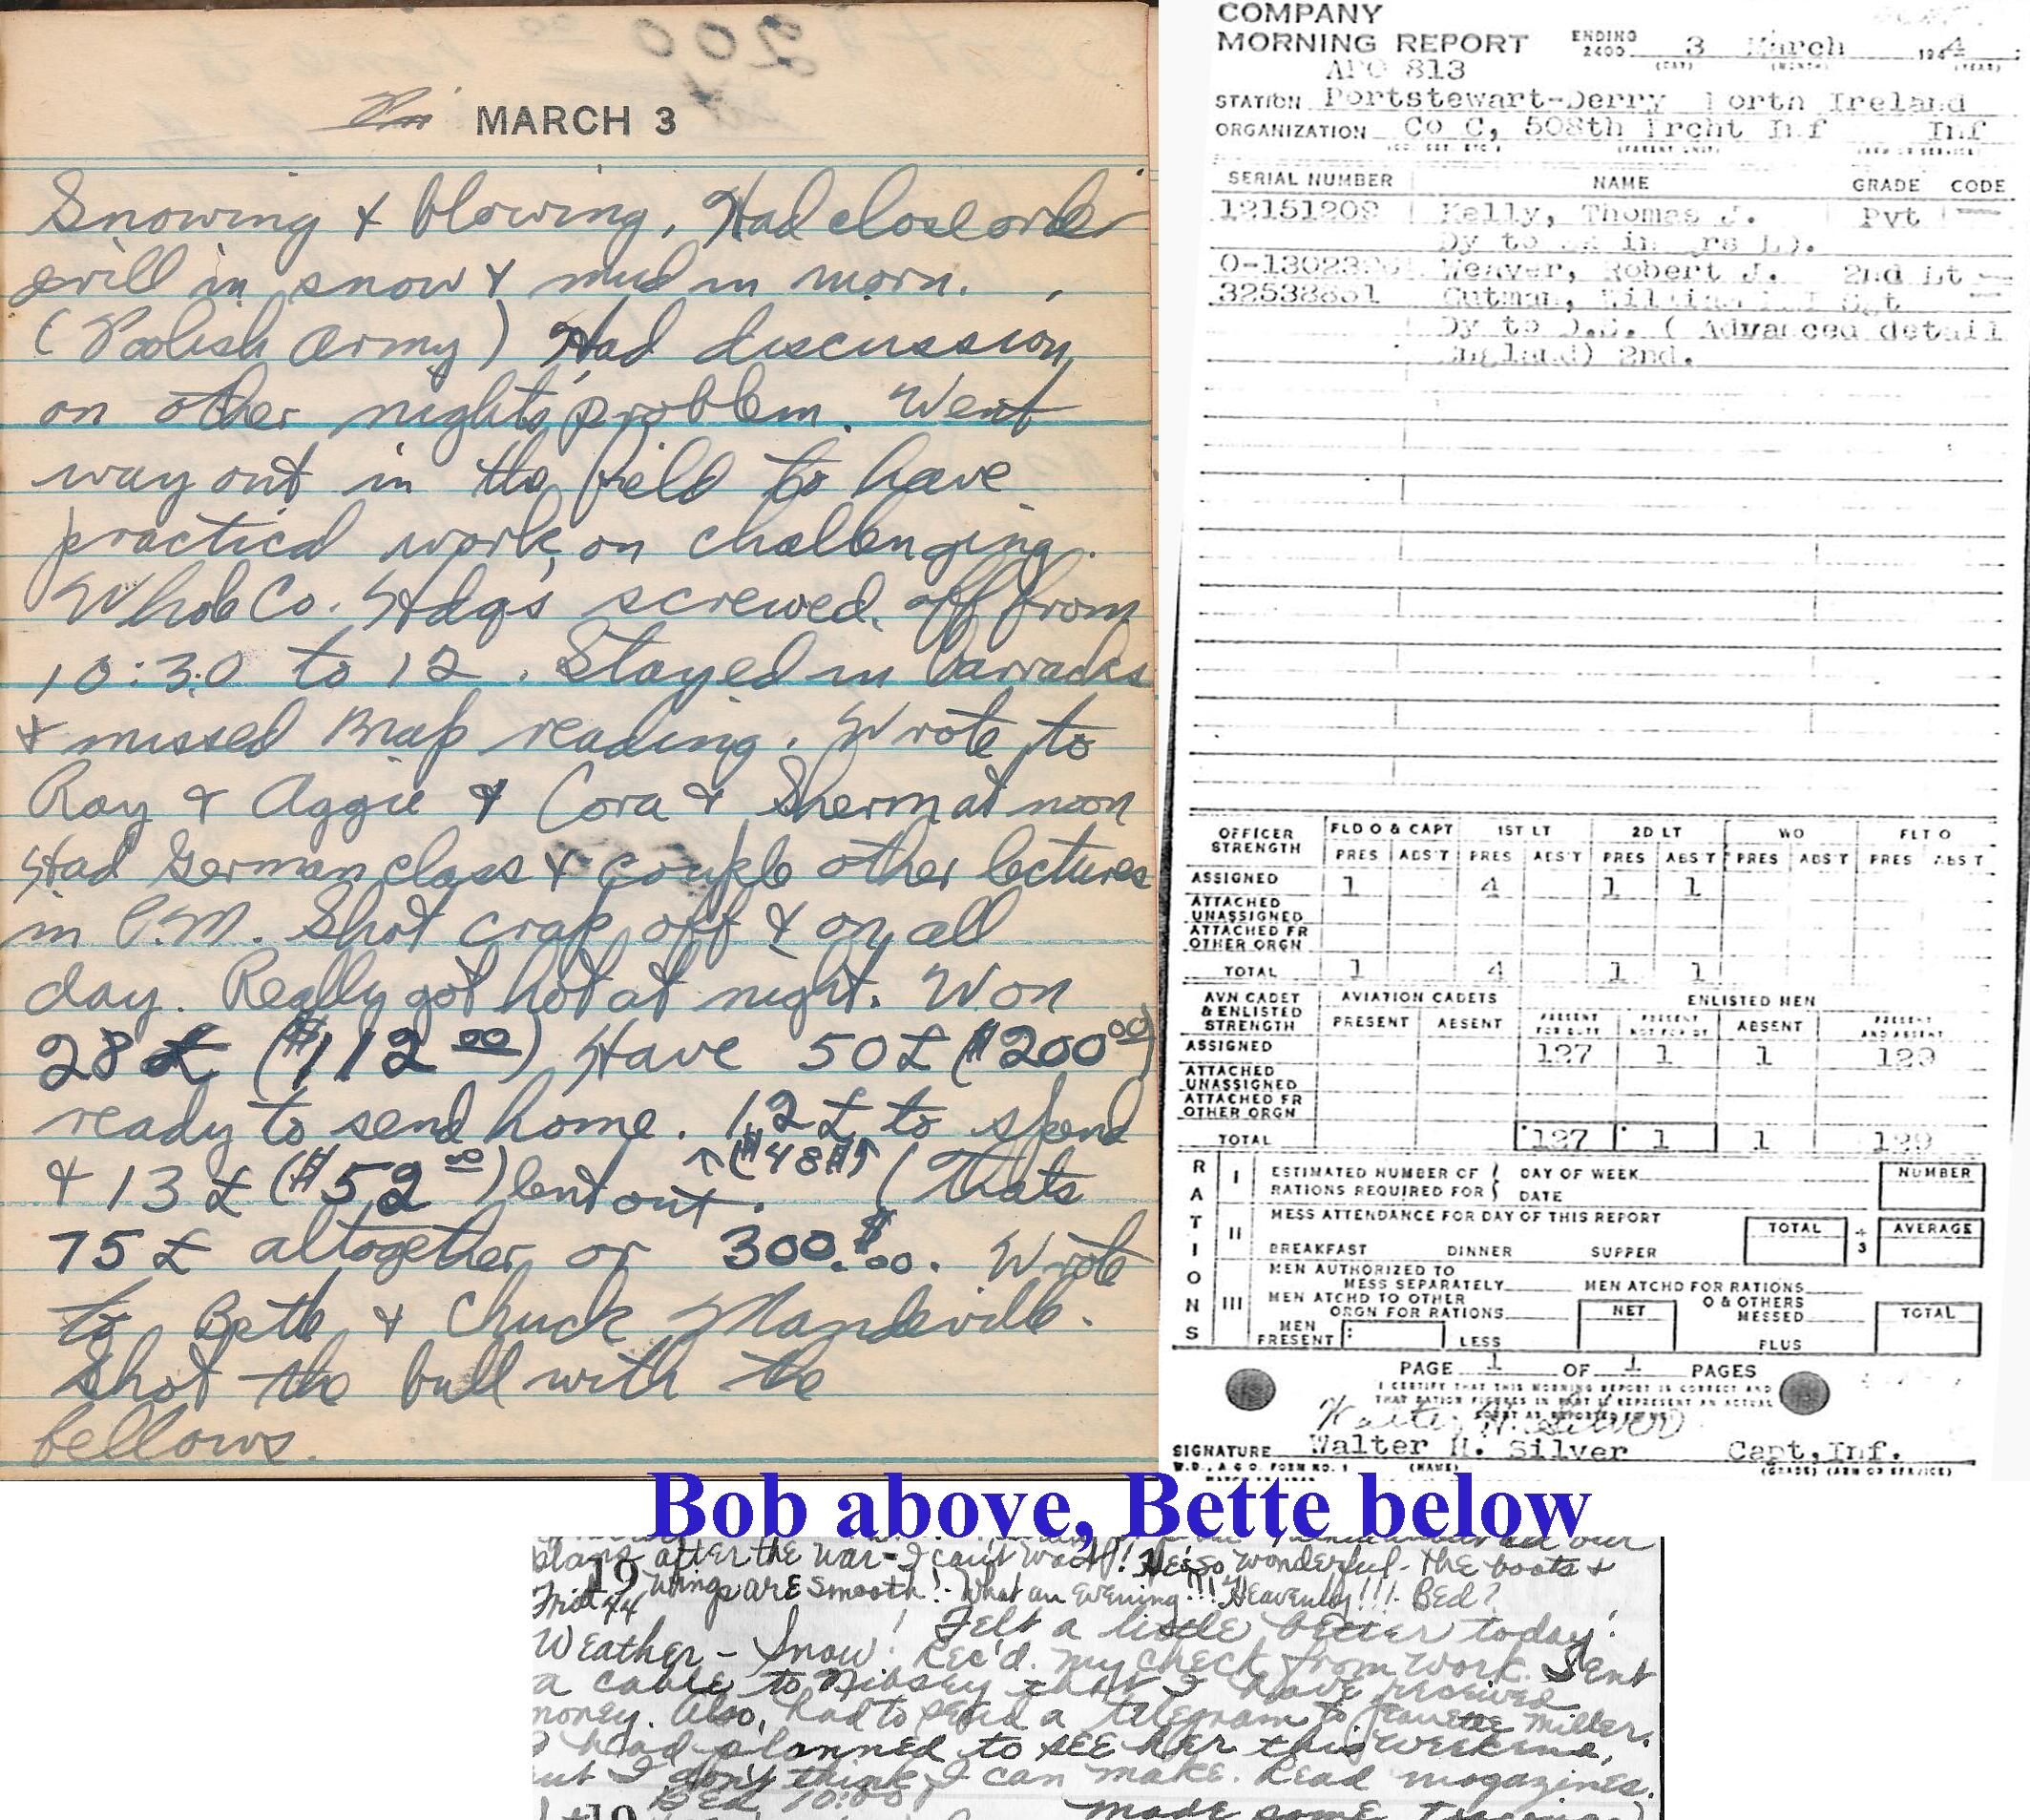 200 00
Fri MARCH 3
Snowing & blowing. Had close order
drill in snow & mud in morn.
(Polish Army) Had discussion
on other nights problem. Went
way out in the field to have
practical work on challenging.
Whole Co. Hdqs screwed off from
10:30 to 12. Stayed in barracks
& missed Map reading. Wrote to
Ray & Aggie & Cora & Sherm at noon
Had German class & couple other lectures
in P.M. Shot crap off & on all
day. Really got hot at night. Won
28£ ($112 00) Have 50£ ($200 00)
ready to send home. 12£ to spend
& 13£ ($52 00) lent out. ↑($48 ↑ (Thats
75£ altogether or 300.$00. Wrote
to Bette & Chuck Mandeville.
Shot the bull with the
fellows.
COMPANY
MORNING REPORT ENDING 2400 3 March 1944
(DAY) (MONTH) (YEAR)
APO 813
STATION Portstewart-Derry North Ireland
ORGANIZATION Co C, 508th Prcht Inf Inf
(PARENT UNIT) (ARM OR SERVICE)
SERIAL NUMBER NAME GRADE CODE
12151209 Kelly, Thomas J. Pvt
Dy to
Weaver, Robert J. 2nd Lt
32538851 Gutman, Sgt
Dy to D.S. ( Advanced detail
England) 2nd.
OFFICER STRENGTH FLD O & CAPT 1ST LT 2D LT WO FLT O
PRES ABS'T PRES ABS'T PRES ABS'T PRES ABS'T PRES ABS'T
ASSIGNED 1 4 1 1
ATTACHED UNASSIGNED
ATTACHED FR OTHER ORGN
TOTAL 1 4 1 1
AVN CADET & ENLISTED STRENGTH AVIATION CADETS ENLISTED MEN
PRESENT ABSENT PRESENT FOR DUTY PRESENT NOT FOR DY ABSENT PRESENT AND ABSENT
ASSIGNED 127 1 1 129
ATTACHED UNASSIGNED
ATTACHED FR OTHER ORGN
TOTAL 127 1 1 129
RATIONS
I ESTIMATED NUMBER OF RATIONS REQUIRED FOR DAY OF WEEK DATE NUMBER
II MESS ATTENDANCE FOR DAY OF THIS REPORT TOTAL ÷ 3 AVERAGE
BREAKFAST DINNER SUPPER
III MEN AUTHORIZED TO MESS SEPARATELY MEN ATCHD FOR RATIONS
MEN ATCHD TO OTHER ORGN FOR RATIONS NET O & OTHERS MESSED TOTAL
MEN PRESENT LESS PLUS
PAGE 1 OF 1 PAGES
I CERTIFY THAT THIS MORNING REPORT IS CORRECT AND
THAT RATION FIGURES IN PART II REPRESENT AN ACTUAL
Walter H. Silver
SIGNATURE Walter H. Silver Capt, Inf.
W.D., A.G.O. FORM NO. 1 (NAME) (GRADE) (ARM OR SERVICE)
Bob above, Bette below
plans after the war - I can't wait! He's so wonderful - the boots &
19 wings are smooth! What an evening!!! Heavenly!!! Bed?
Fri 44
Weather - Snow! Felt a little better today!
Rec'd. my check from work. Sent
a cable to that I have received
money. Also, had to send a telegram to Jeanette Miller.
I had planned to see her this weekend,
but I don't think I can make. Read magazines.
Bed 10:00
19 made some